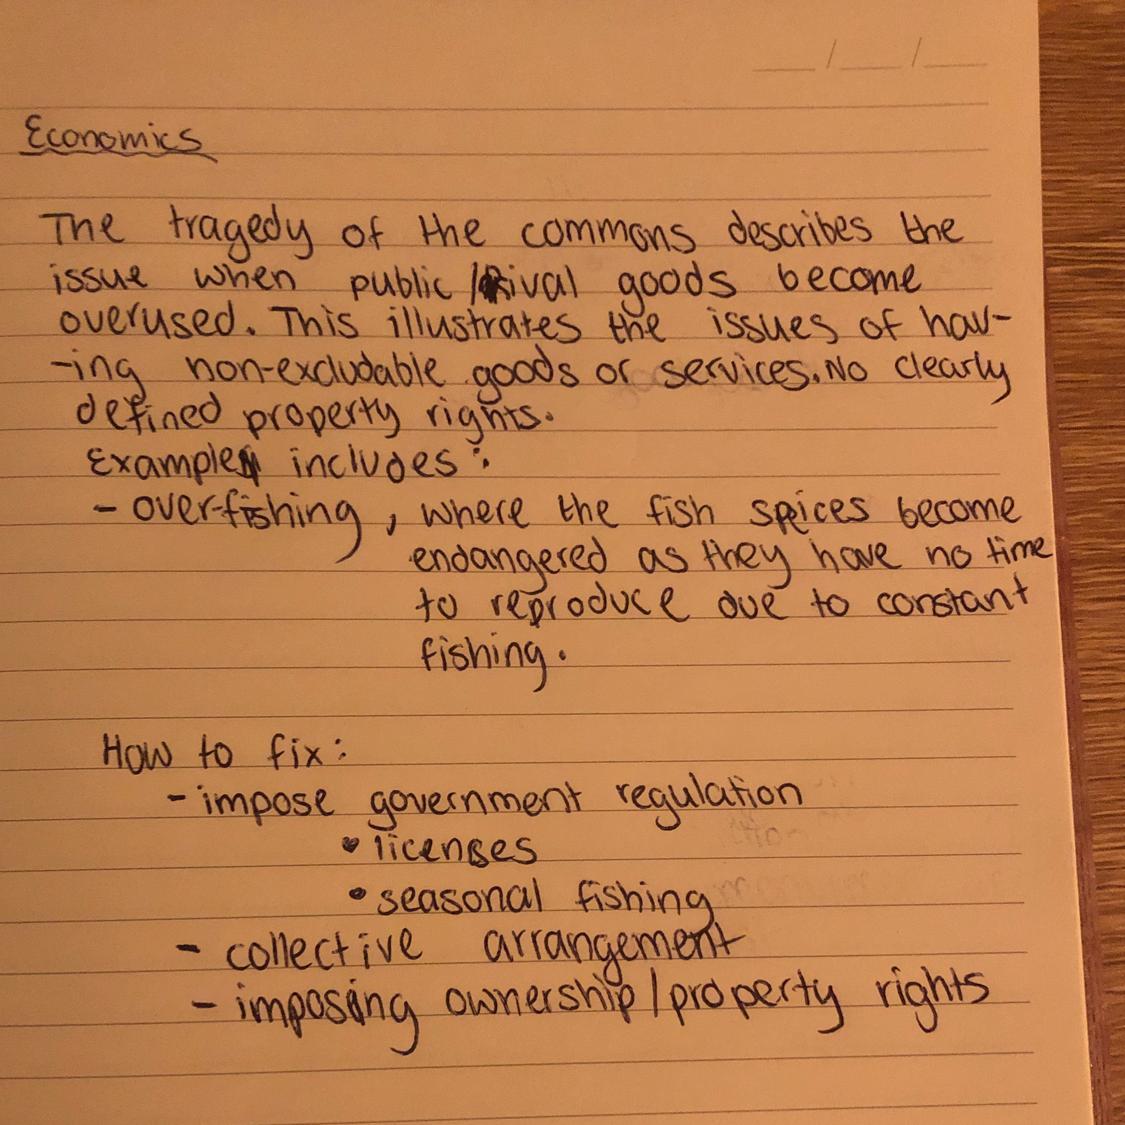 Economics
The tragedy of the commons describes the
issue when public/rival goods become
overused. This illustrates the issues of hav-
-ing non-excludable goods or services. No clearly
defined property rights.
Example includes:
- over-fishing, where the fish speices become
endangered as they have no time
to reproduce due to constant
fishing.
How to fix:
- impose government regulation
• licenses
• seasonal fishing
- collective arrangement
- imposing ownership/property rights